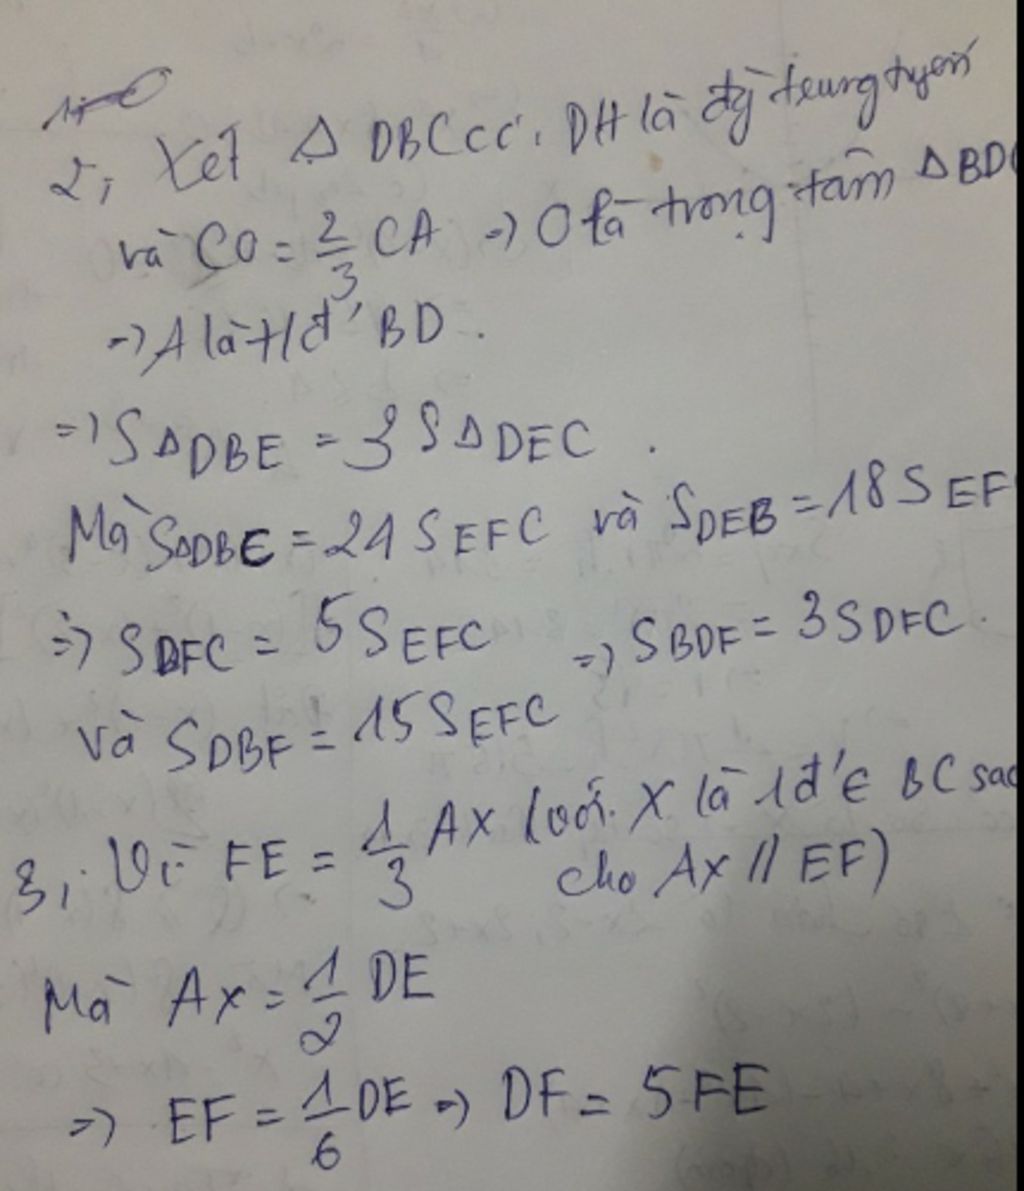 2, Xét Δ DBC có: DH là đg trung tuyến
và CO = 2/3 CA => O là trọng tâm Δ BDC
=> A là t/đ' BD.
=> SΔDBE = 3 SΔDEC.
Mà SΔDBE = 21 SEFC và SDEB = 18 SEF
=> SDFC = 5 SEFC => SBDF = 3 SDFC.
và SDBF = 15 SEFC
3, Vì FE = 1/3 AX (với X là 1 đ' ∈ BC sao
cho AX // EF)
Mà AX = 1/2 DE
=> EF = 1/6 DE => DF = 5 FE